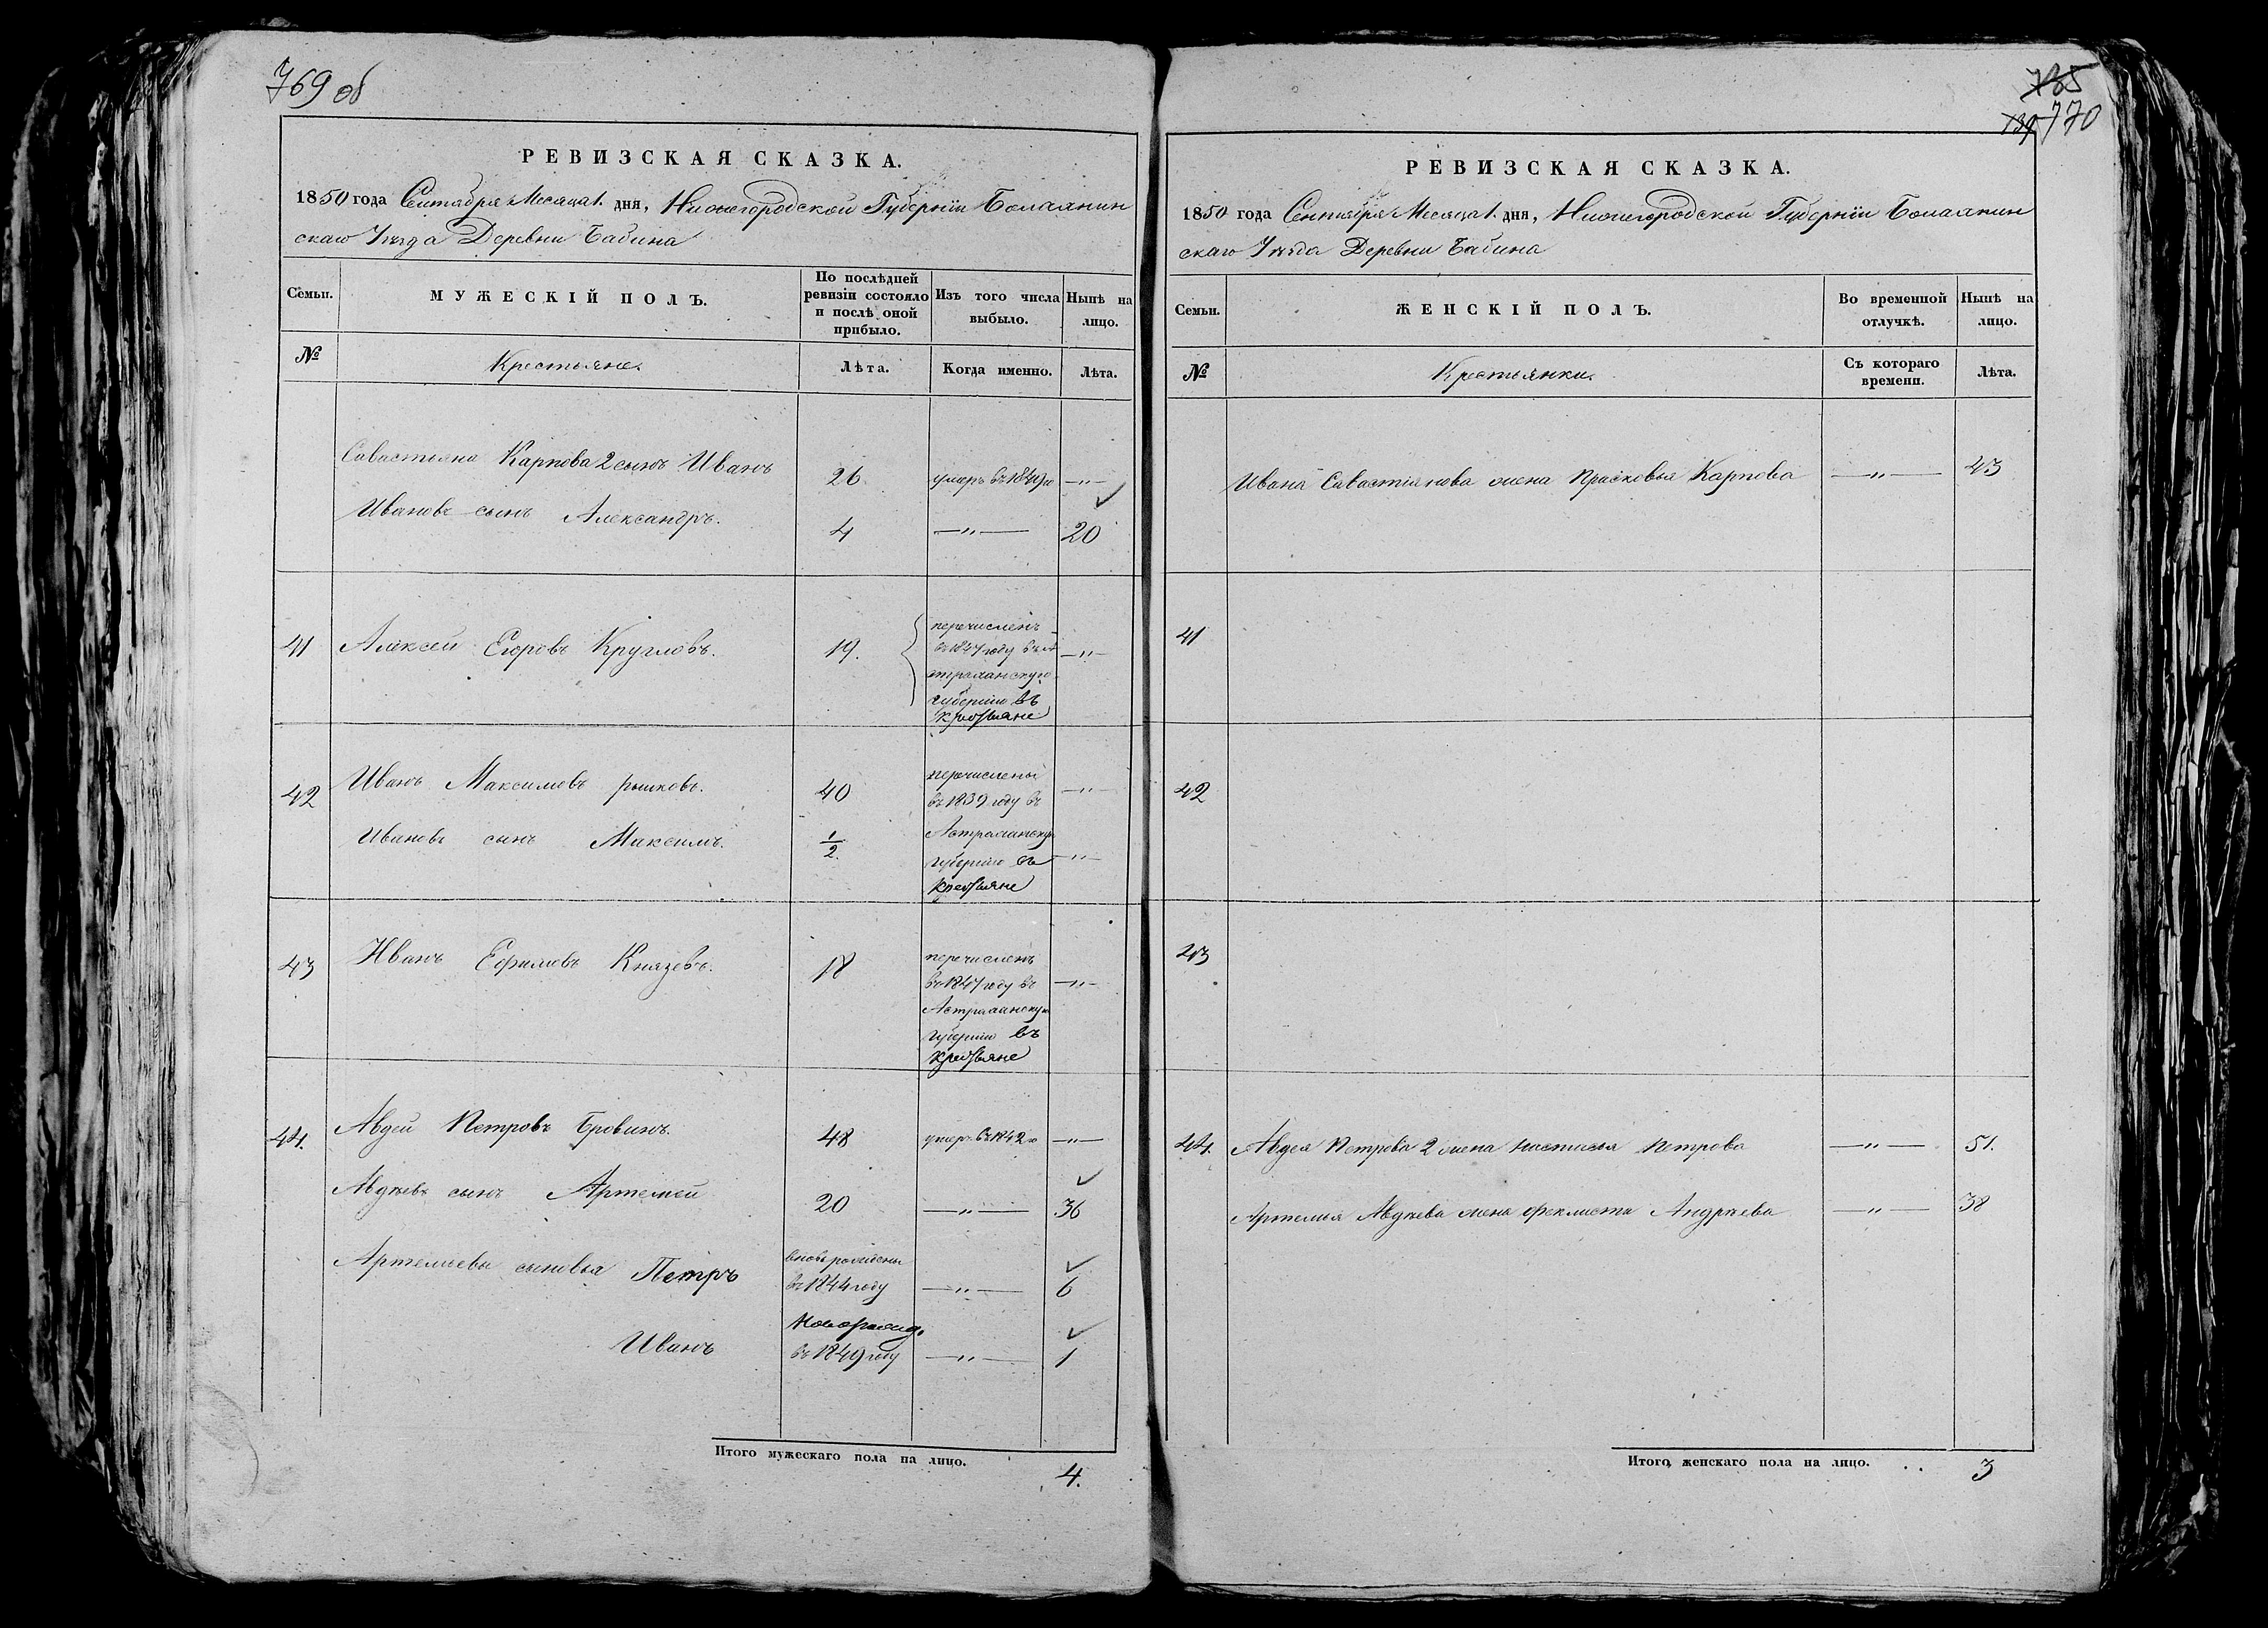 769 об
РЕВИЗСКАЯ СКАЗКА.
1850 года Сентября Месяца 1. дня, Нижегородской Губерніи Балахнин
скаго Уѣзда Деревни Бабина
Семьи.
МУЖЕСКІЙ ПОЛЪ.
По послѣдней
ревизіи состояло
и послѣ оной
прибыло.
Изъ того числа
выбыло.
Нынѣ на
лицо.
№
Крестьяне.
Лѣта.
Когда именно.
Лѣта.
Савастьяна Карпова 2 сынъ Иванъ 26 умеръ въ 1849 го —"—
Ивановъ сынъ Александръ. 4 —"— 20
41 Алексей Егоровъ Кругловъ. 19. —"—
перечисленъ
въ 1847 году въ Ас
траханскую
губернію въ
крестьяне
42 Иванъ Максимовъ рыжковъ. 40 —"—
Ивановъ сынъ Максимъ. 1/2. —"—
перечислены
въ 1839 году въ
Астраханскую
губернію въ
крестьяне
43 Иванъ Ефимовъ Князевъ. 18 —"—
перечисленъ
въ 1847 году въ
Астраханскую
губернію въ
крестьяне
44. Авдей Петровъ Бровинъ. 48 умеръ въ 1842 го —"—
Авдѣевъ сынъ Артемей 20 —"— 36
Артемьевы сыновья Петръ —"— 6
вновь рожденъ
въ 1844 году
Иванъ —"— 1
Новорожд.
въ 1849 году
Итого мужескаго пола на лицо. 4.
735
739 770
РЕВИЗСКАЯ СКАЗКА.
1850 года Сентября Месяца 1. дня, Нижегородской Губерніи Балахнин
скаго Уѣзда Деревни Бабина
Семьи.
ЖЕНСКІЙ ПОЛЪ.
Во временной
отлучкѣ.
Нынѣ на
лицо.
№
Крестьянки.
Съ котораго
времени.
Лѣта.
Ивана Савастіянова жена Прасковья Карпова —"— 43
41
42
43
44. Авдея Петрова 2 жена Настасья Петрова —"— 51.
Артемья Авдѣева жена Феклиста Андрѣева —"— 38
Итого женскаго пола на лицо. . . 3